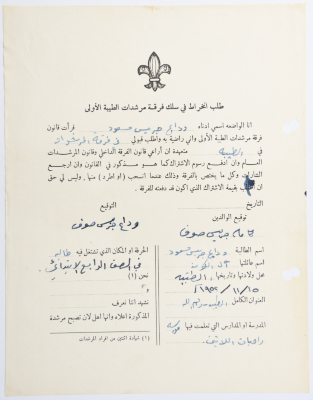 طلب انخراط في سلك فرقة مرشدات الطيبة الأولى
انا الواضعه اسمي ادناه وداع جريس مسعود قرأت قانون
فرقة مرشدات الطيبة الأولى واني راضية به واطلب قبولي في فرقة المرشدات
في الطيبه متعهدة ان أراعي قانون الفرقة الداخلي وقانون المرشدات
العام وان ادفع رسوم الاشتراك كما هو مذكور في القانون وان ارجع
الشارات وكل ما يختص بالفرقة وذلك عندما انسحب (او اطرد) منها, وليس لي حق
ان اطالب بقيمة الاشتراك الذي اكون قد دفعته للفرقة.
التاريخ
التوقيع
وداع جريس
توقيع الوالدين
جريس
اسم الطالبة وداع جريس مسعود
اسم عائلتها
محل ولادتها وتاريخها الطيبه
العنوان الكامل الطيبه رام الله
المدرسة او المدارس التي تعلمت فيها
راهبات اللاتين
الحرفة او المكان الذي تشتغل فيه طالبه
في الصف الرابع الابتدائي
نحن (١)
و
نشهد اننا نعرف
المذكورة اعلاه وانها اهل لان تصبح مرشدة
(١) شهادة اثنين من افراد المرشدات